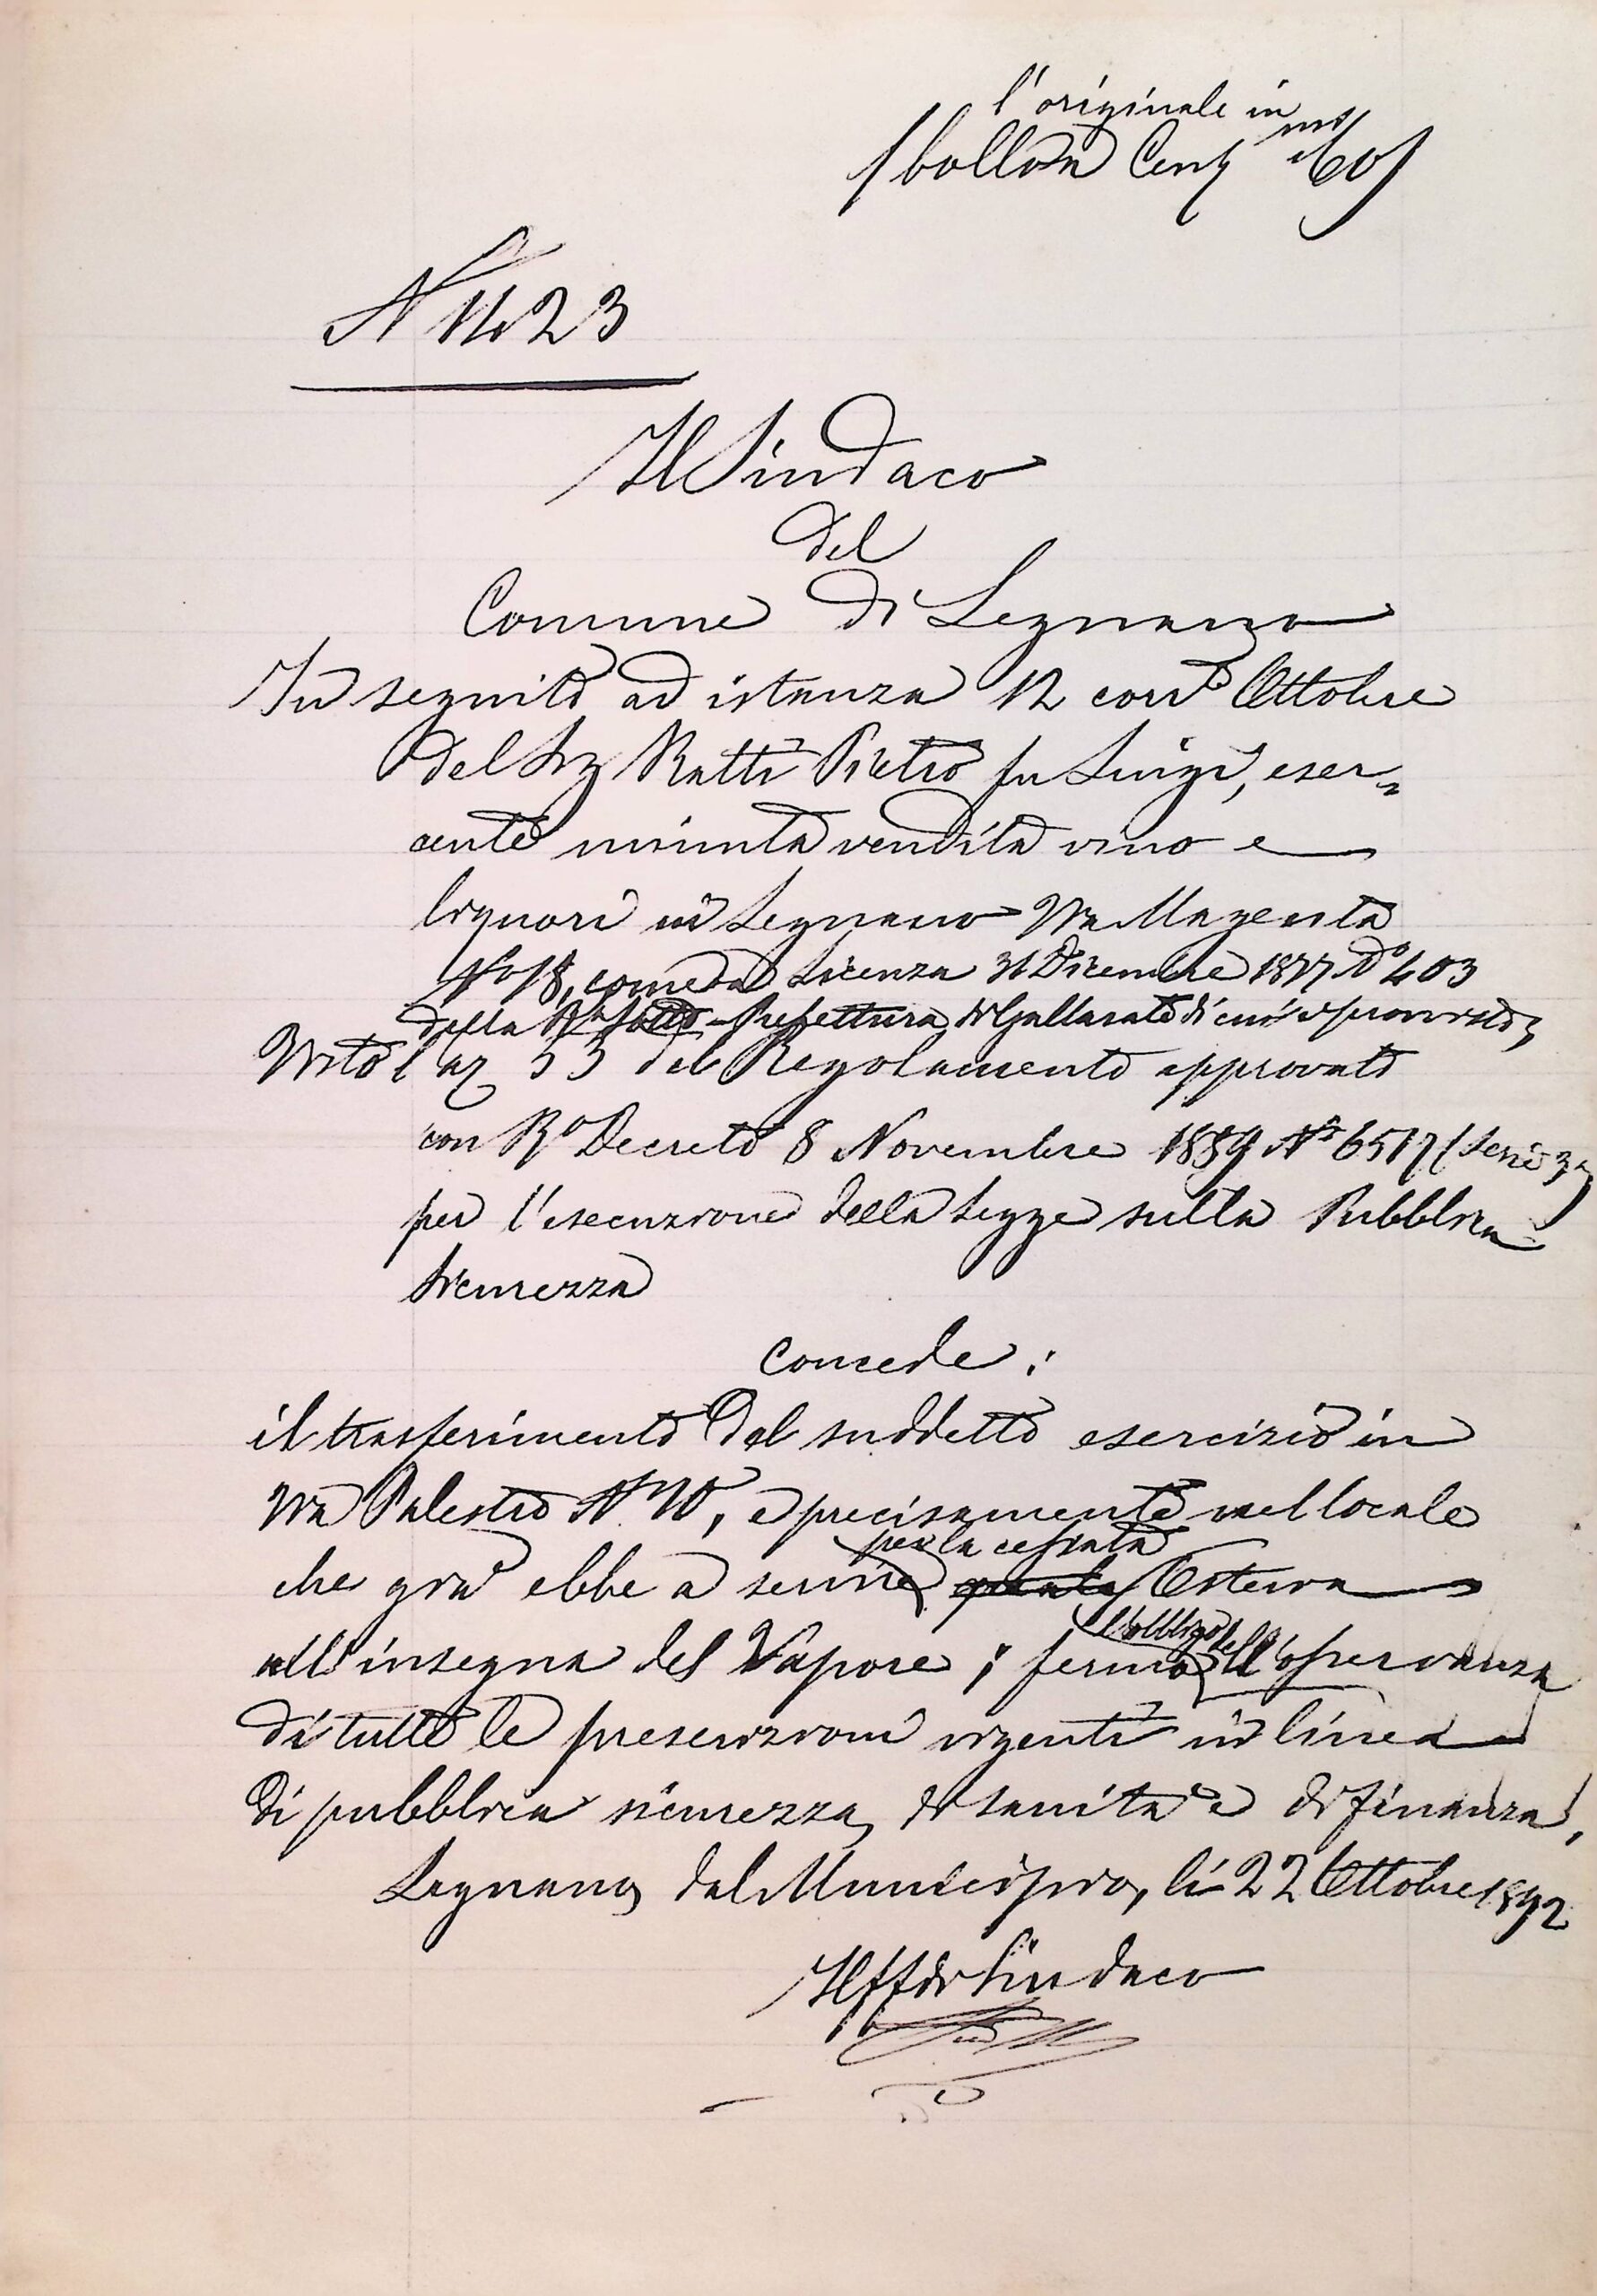 l'originale in
bollo da Cent.mi 60
N 1623
Il Sindaco
del
Comune di Legnano
In seguito ad istanza 12 corr.e Ottobre
del Sig Ratti Pietro fu Luigi, eser=
cente minuta vendita vino e
liquori in Legnano Via Magenta
N° 18, come da Licenza 31 Dicembre 1877 N° 403
della R.a Sotto-Prefettura di Gallarate di cui è provvisto;
Visto l'ar 53 del Regolamento approvato
con R° Decreto 8 Novembre 1889 N° 6517 (Serie 3a)
per l'esecuzione della Legge sulla Pubblica
Sicurezza
concede:
il trasferimento del suddetto esercizio in
Via Palestro N° 10, e precisamente nel locale
per la cessata
che già ebbe a servire Osteria
all'insegna del Vapore; fermo
l'obbligo dell'osservanza
di tutte le prescrizioni vigenti in linea
di pubblica sicurezza, di sanità e di finanza.
Legnano, dal Municipio, li 22 Ottobre 1892
Il ff di Sindaco